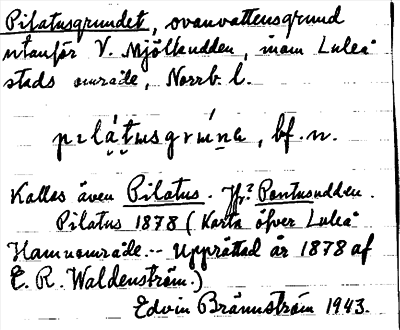 Pilatusgrundet, ovanvattensgrund
utanför V. Mjölkudden, inom Luleå
stads område, Norrb. l.
bf. n.
Kallas även Pilatus. Jfr? Pontusudden.
Pilatus 1878 (Karta öfver Luleå
Hamnområde.-- Upprättad år 1878 af
E. R. Waldenström.)
Edvin Brännström 1943.